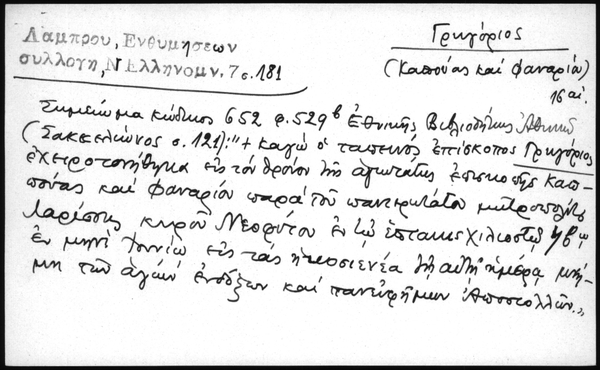 Λάμπρου, Ενθυμήσεων
συλλογή, Ν Ελληνομν. 7 σ. 181
Γρηγόριος
(Καπούας καί Φαναρίου)
16 αἰ.
Σημείωμα κώδικος 652 φ. 529β Ἐθνικῆς Βιβλιοθήκης Ἀθηνῶν
(Σακκελίωνος σ. 121): "+ καγώ ὁ ταπεινός ἐπίσκοπος Γρηγόριος
ἐχειροτονήθηκα εἰς τόν θρόνον τῆς ἁγιωτάτης ἐπισκοπῆς Καπ-
πούας καί Φαναρίου παρά τοῦ πανιερωτάτου μητροπολίτου
Λαρίσσης κυροῦ Νεοφύτου ἐν τῷ ἑπτακισχιλιοστῷ
ἐν μηνί Ἰουνίῳ εἰς τάς ἠκοσιενέα τῇ αὐτῇ ἡμέρᾳ μνή-
μη τῶν ἁγίων ἐνδόξων καί πανευφήμων Ἀποστόλλων."